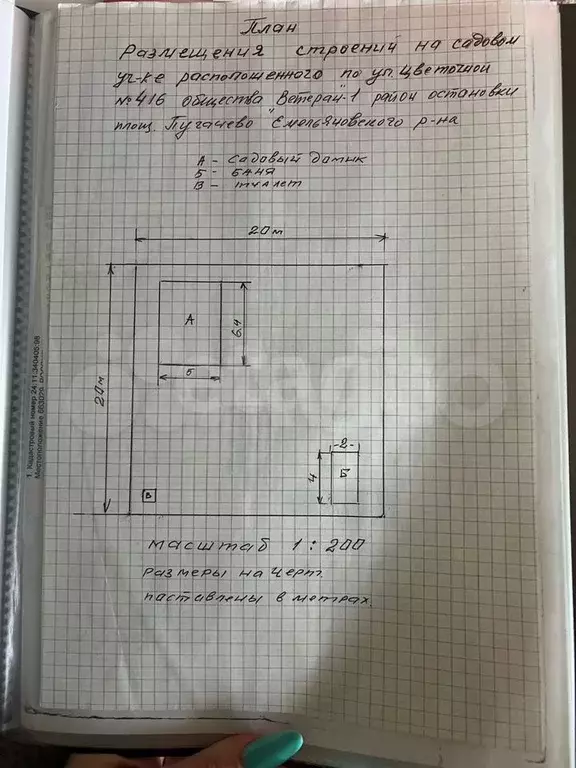 План
Размещения строений на садовом
уч-ке расположенного по ул. Цветочной
№416 общества "Ветеран"-1 район остановки
площ. Пугачево Емельяновского р-на
А - садовый домик
Б - баня
В - туалет
20 м
20 м
А
6.4
5
2
4
Б
В
масштаб 1 : 200
размеры на черт.
паставлены в метрах.
1. Кадастровый номер 24:11:340405:98